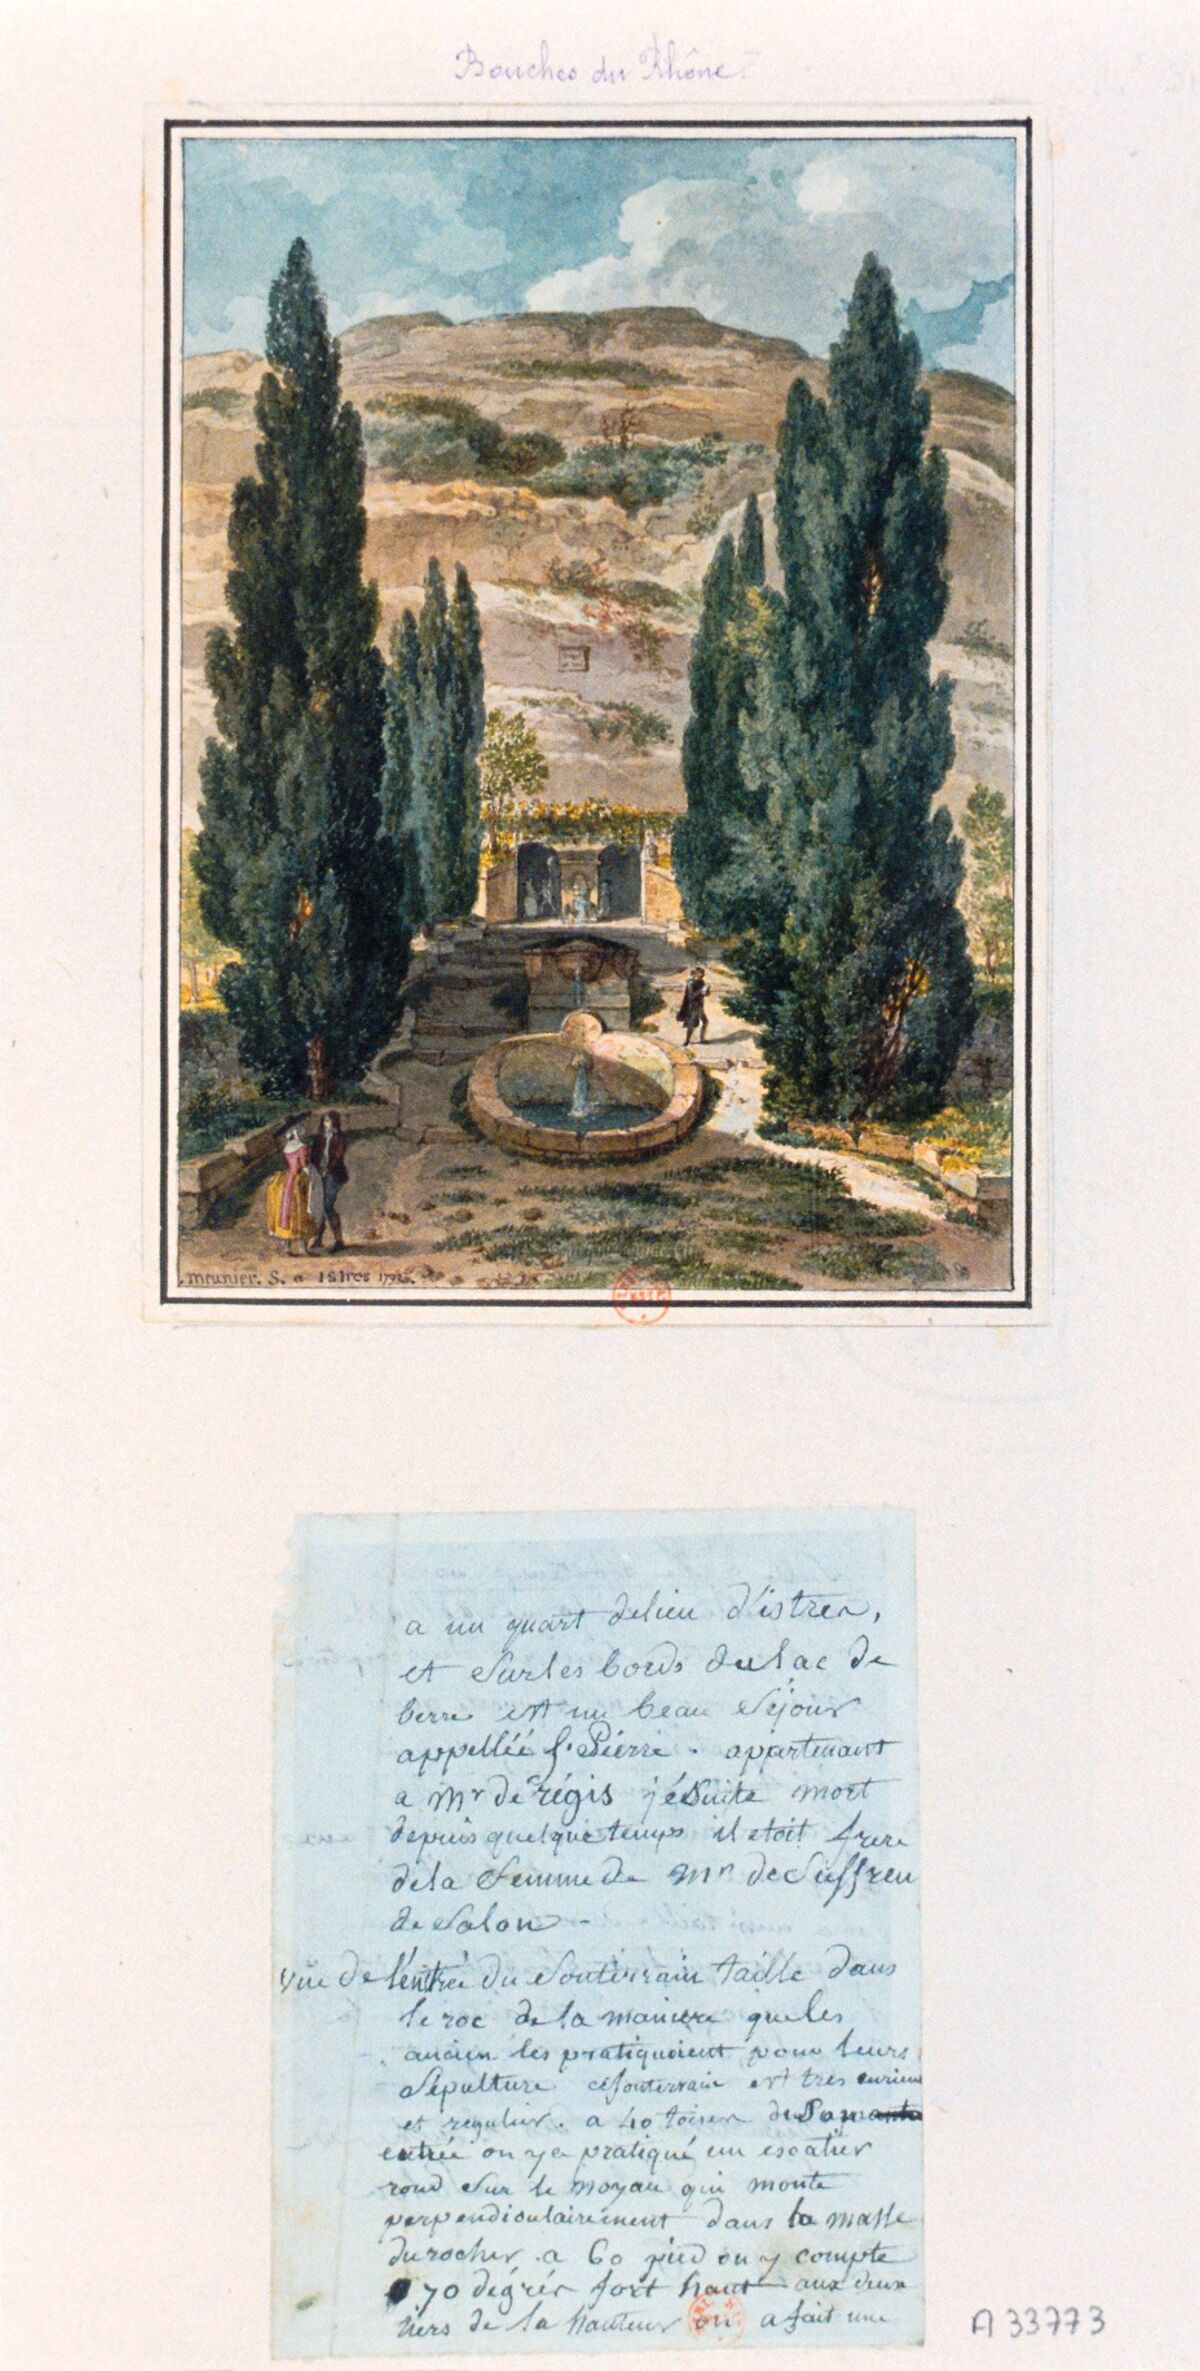 Bouches du Rhône
meunier. S. a Istres 1792.
a un quart delieu d'istres,
et surles bords dulac de
berre est un beau séjour
appelléé St. Piérre. appartenant
a Mr de régis jésuite mort
depuis quelque temps il etoit frere
dela femme de Mr de Suffren
de Salon -
vue de l'entrée du souterrain taillé dans
le roc de la maniere queles
ancien les pratiquoient pour leurs
sépulture cesouterrain est très curieux
et regulier. a 40 toises de
entrée on ya pratiqué un escalier
rond sur le noyau qui monte
perpendiculairement dans la masse
durocher. a 60 pied on y compte
70 degrés fort haut aux deux
tiers de la hauteur on a fait une
A 33773